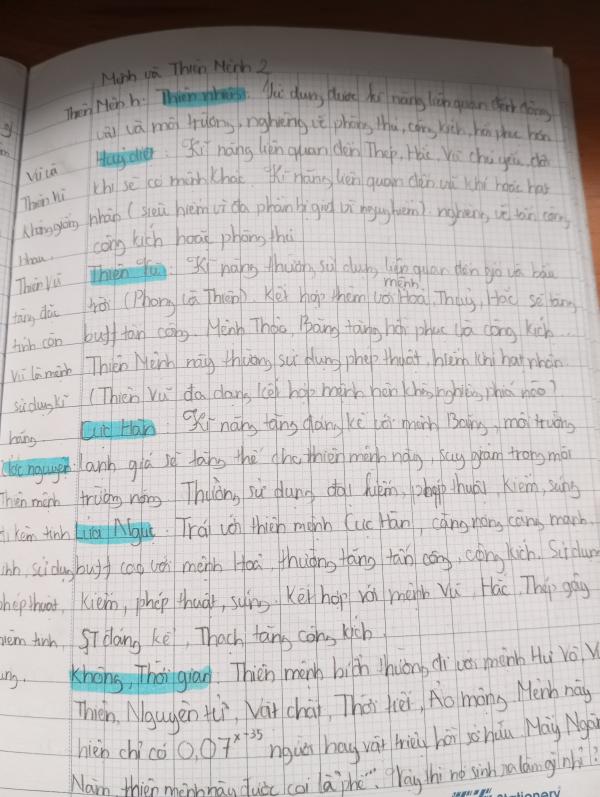 Mệnh và Thiên Mệnh 2
Thiên Mệnh: Thiên nhiên: Sử dụng được kĩ năng liên quan đến động
vật và môi trường, nghiêng về phòng thủ, công kích, hồi phục hơn
Huỷ diệt: Kĩ năng liên quan đến Thép, Hắc, Vũ chủ yếu, đôi
khi sẽ có mệnh khác. Kĩ năng liên quan đến vũ khí hoặc hạt
nhân (siêu hiếm vì đa phần bị giết vì nguy hiểm). nghiêng về tấn công
công kích hoặc phòng thủ
Thiên Vũ: Kĩ năng thường sử dụng liên quan đến gió và bầu
trời (Phong và Thiên). Kết hợp thêm với mệnh Hoả, Thuỷ, Hắc sẽ tăng
buff tấn công. Mệnh Thộc, Băng tăng hồi phục và công kích.
Thiên Mệnh này thường sử dụng phép thuật, hiếm khi hạt nhân
(Thiên Vũ đa dạng kết hợp mệnh hơn không nghiêng phía nào)
Cực Hàn: Kĩ năng tăng đáng kể với mệnh Băng, môi trường
lạnh giá sẽ tăng thế cho thiên mệnh này, suy giảm trong môi
trường nóng. Thường sử dụng đại kiếm, phép thuật, kiếm, súng
Lửa Ngục: Trái với thiên mệnh Cực Hàn, càng nóng càng mạnh.
buff cao với mệnh Hoả, thường tăng tấn công, công kích. Sử dụng
Kiếm, phép thuật, súng. Kết hợp với mệnh Vũ, Hắc, Thép gây
ST đáng kể, Thạch tăng công kích.
Không, Thời gian: Thiên mệnh thường đi với mệnh Hư Vô,
Thiên, Nguyên tử, Vật chất, Thời tiết, Ảo mộng. Mệnh này
hiện chỉ có 0,07^x-35 người hay vật triệu hồi sở hữu. Mấy Ngàn
Năm, thiên mệnh này được coi là "phế". "Vậy thì nó sinh ra làm gì nhỉ?
Vũ và
Thiên Vũ
Không giống
nhau.
Thiên Vũ
tăng đặc
tính còn
Vũ là mệnh
sử dụng kĩ
năng
nguyên
Thiên mệnh
đi kèm tính
sử dụng
phép thuật,